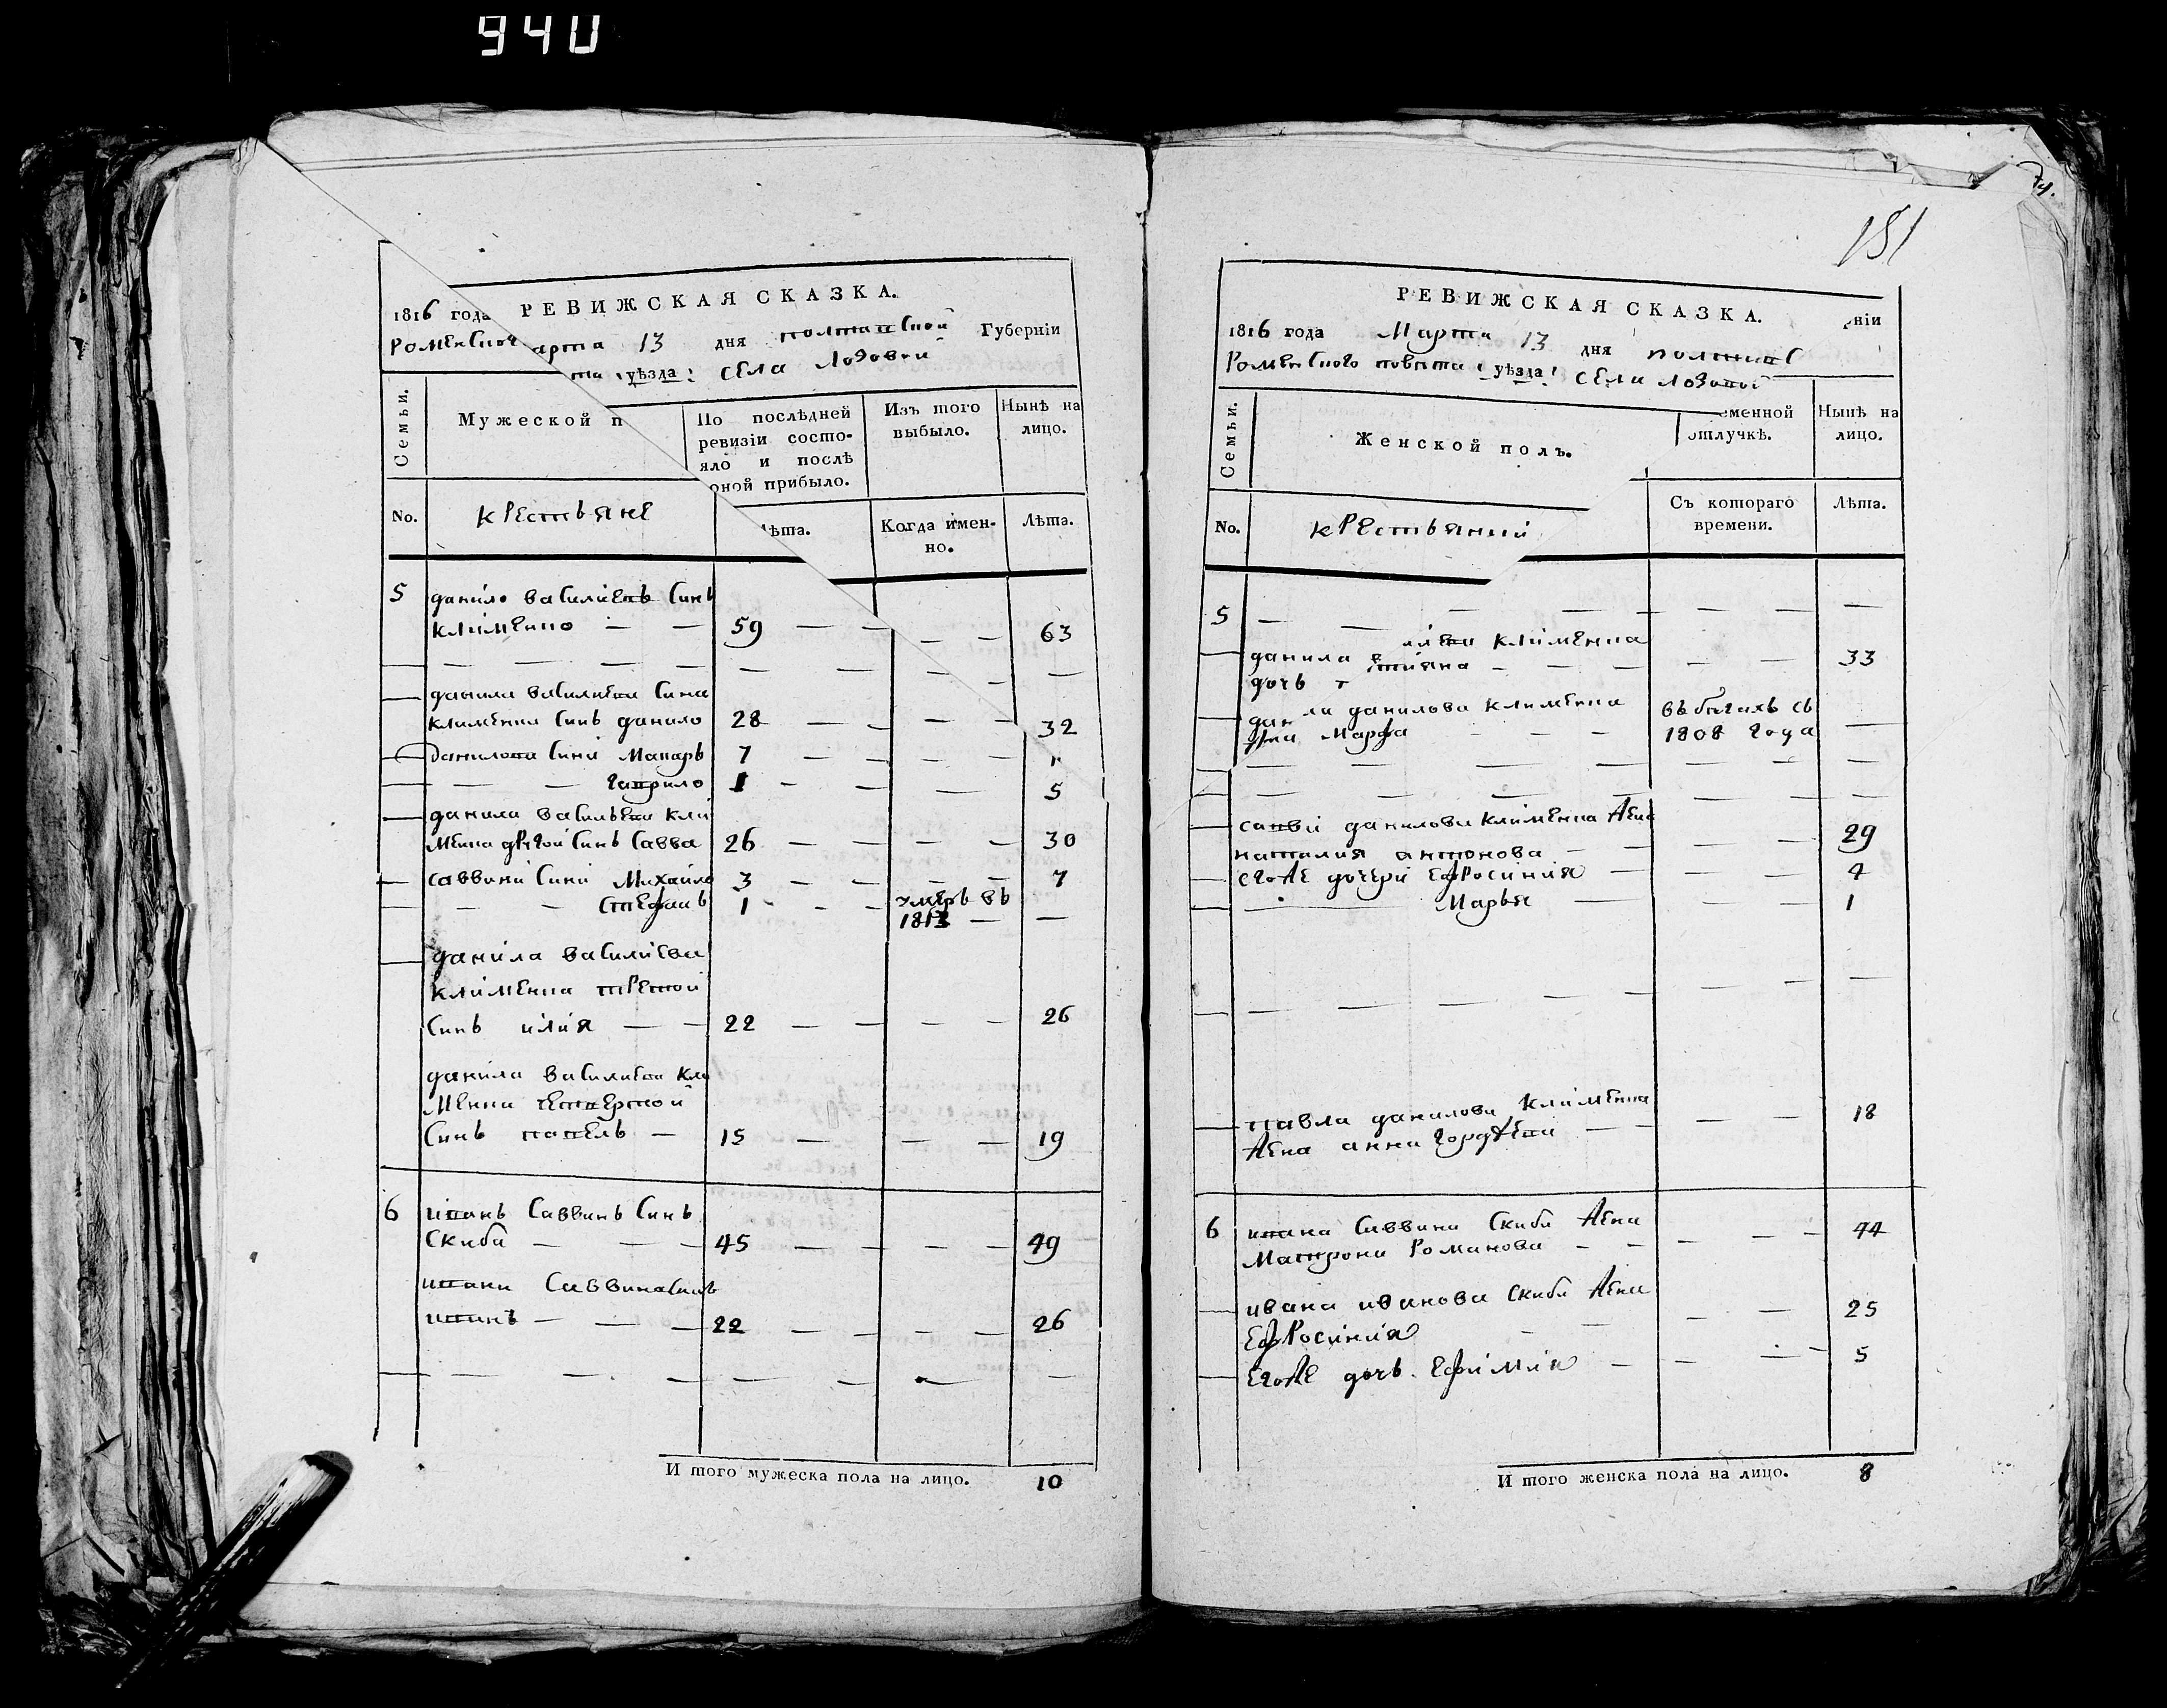 940
РЕВИЖСКАЯ СКАЗКА.
1816 года
арта 13 дня полтавской Губерніи
Роменског
та уѣзда: села Лозовой
Семьи.
Мужеской п
По послѣдней ревизіи состо-
яло и послѣ
оной прибыло.
Изъ того
выбыло.
Нынѣ на
лицо.
No.
крестьяне
ѣта.
Когда имен-
но.
Лѣта.
5 данило василіевъ синъ
клименко — — 59 — — — — 63
— — — — — — — — — —
данила василиева сина
клименка синъ данило 28 — — — — 32
данилова сини Макаръ 7 — — — —
— — гаврило 1 — — — 5
данила василъева кли
менка другой синъ савва 26 — — — — 30
саввини сини Михайло 3 — — — — 7
— — стефанъ 1 — — умеръ въ
1813 — —
данила василиева
клименка третой
синъ илия — — 22 — — — — 26
данила василиева кли
менка четвертой
синъ павелъ — 15 — — — 19
6 иванъ саввинъ синъ
скиба — — — 45 — — — — 49
ивана саввина синъ
иванъ — — — 22 — — — — 26
— — — — — — — —
И того мужеска пола на лицо. 10
151
РЕВИЖСКАЯ СКАЗКА.
1816 года Марта 13 дня полтавс ніи
Роменского повѣта: уѣзда: села лозовой
Семьи.
Женской полъ.
еменной
отлучкѣ.
Нынѣ на
лицо.
No.
крестьянки
Съ котораго
времени.
Лѣта.
5 — — — — — — — —
данила клименка
дочь т тияна — — — — — 33
дан ла данилова клименка въ бегахъ съ
Марфа — — 1808 года —
— — — — — — —
— — — — — — —
савви данилова клименка жена
наталия антонова — — — — 29
егоже дочери ефросиния — — — 4
— Марья — — — 1
— — — — — — — —
павла данилова клименка
жена анна гордѣева — — — — 18
6 ивана саввина скиби жена
Матрона Романова — — — — — 44
ивана иванова скиби жена
ефросиния — — — — 25
егоже дочь ефимия — — — 5
И того женска пола на лицо. 8